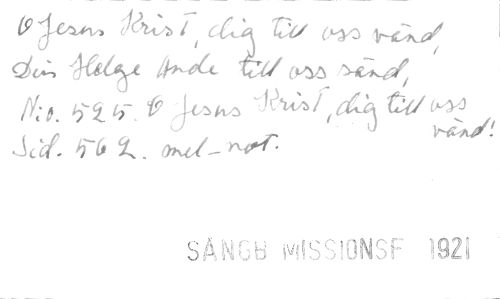 O Jesus Krist, dig till oss vänd,
Din Helge Ande till oss sänd,
No. 525. O Jesus Krist, dig till oss
vänd!
Sid. 562. mel-not.
SÅNGB MISSIONSF 1921